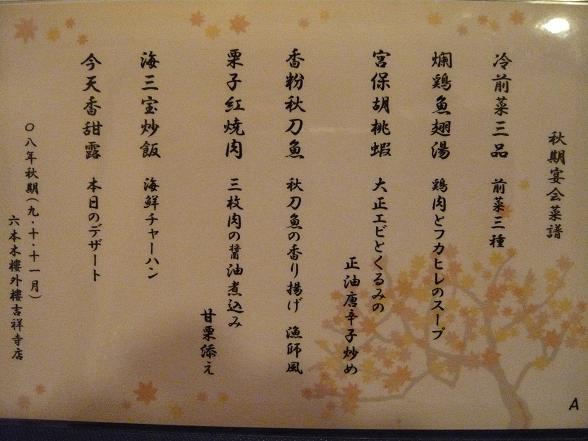 秋期宴会菜譜
冷前菜三品 前菜三種
爛鶏魚翅湯 鶏肉とフカヒレのスープ
宮保胡桃蝦 大正エビとくるみの
正油唐辛子炒め
香粉秋刀魚 秋刀魚の香り揚げ 漁師風
栗子紅焼肉 三枚肉の醤油煮込み
甘栗添え
海三宝炒飯 海鮮チャーハン
今天香甜露 本日のデザート
〇八年秋期(九・十・十一月)
六本木樓外樓吉祥寺店
A